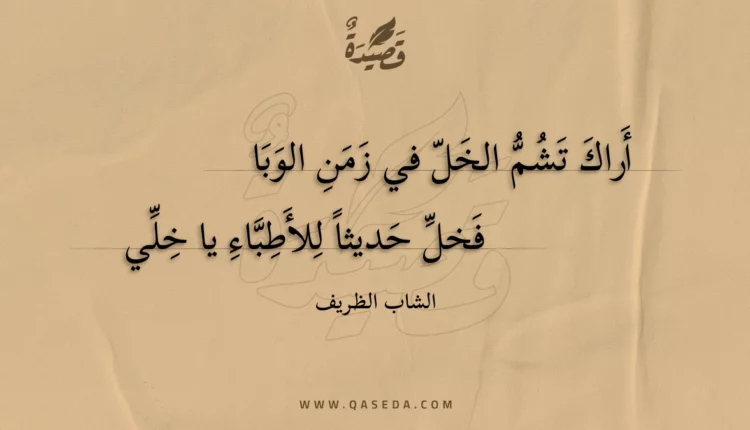 قَصِيْدَةٌ
أَراكَ تَشُمُّ الخَلّ في زَمَنِ الوَبَا
فَخلِّ حَديثاً لِلأَطِبَّاءِ يا خِلِّي
الشاب الظريف
WWW.QASEDA.COM